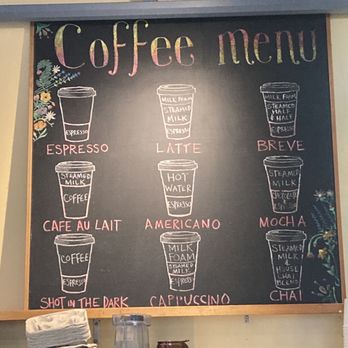 Coffee menu
ESPRESSO
ESPRESSO
MILK FOAM
STEAMED
MILK
ESPRESSO
LATTE
MILK FOAM
STEAMED
HALF
& HALF
ESPRESSO
BREVE
STEAMED
MILK
COFFEE
CAFE AU LAIT
HOT
WATER
ESPRESSO
AMERICANO
STEAMED
MILK
ESPRESSO
MOCHA
COFFEE
ESPRESSO
SHOT IN THE DARK
MILK
FOAM
STEAMED
MILK
ESPRESSO
CAPPUCCINO
STEAMED
MILK
HOUSE
CHAI
BLEND
CHAI